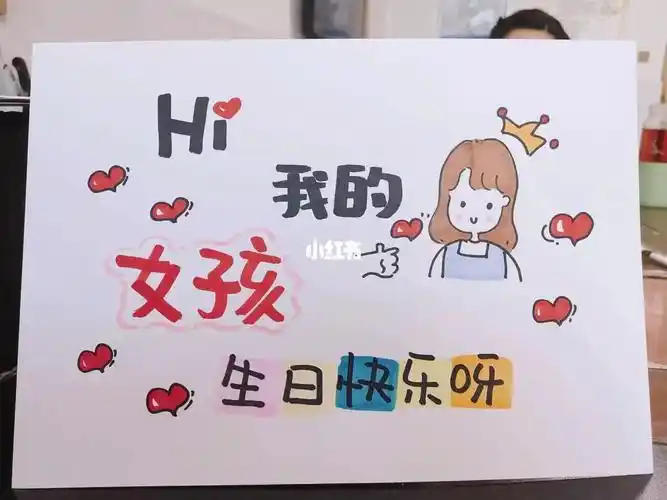 Hi
我的
小红书
女孩
生日快乐呀